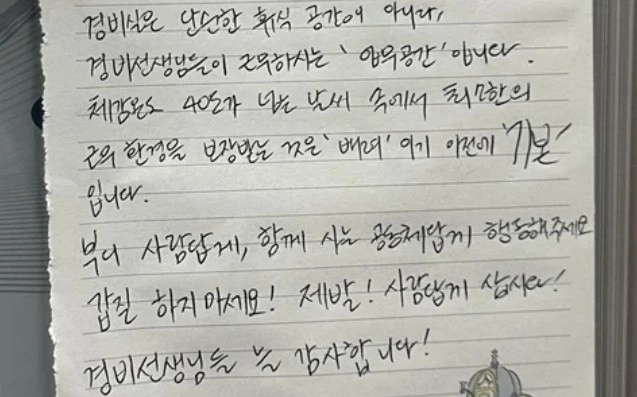 경비실은 단순한 휴식 공간이 아니라,
경비선생님들이 근무하시는 '업무공간'입니다.
체감온도 40도가 넘는 날씨 속에서 최소한의
근무 환경을 보장받는 것은 '배려'이기 이전에 '기본'
입니다.
부디 사람답게, 함께 사는 공동체답게 행동해주세요
갑질 하지마세요! 제발! 사람답게 삽시다!
경비선생님들 늘 감사합니다!